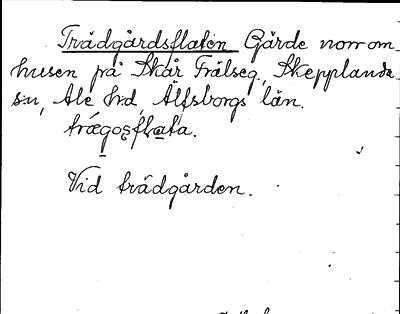 Trädgårdsflaten Gärde norr om
husen på Skår Frälseg., Skepplanda
s:n, Ale h:d, Älfsborgs län.
trǽgosflata.
Vid trädgården.